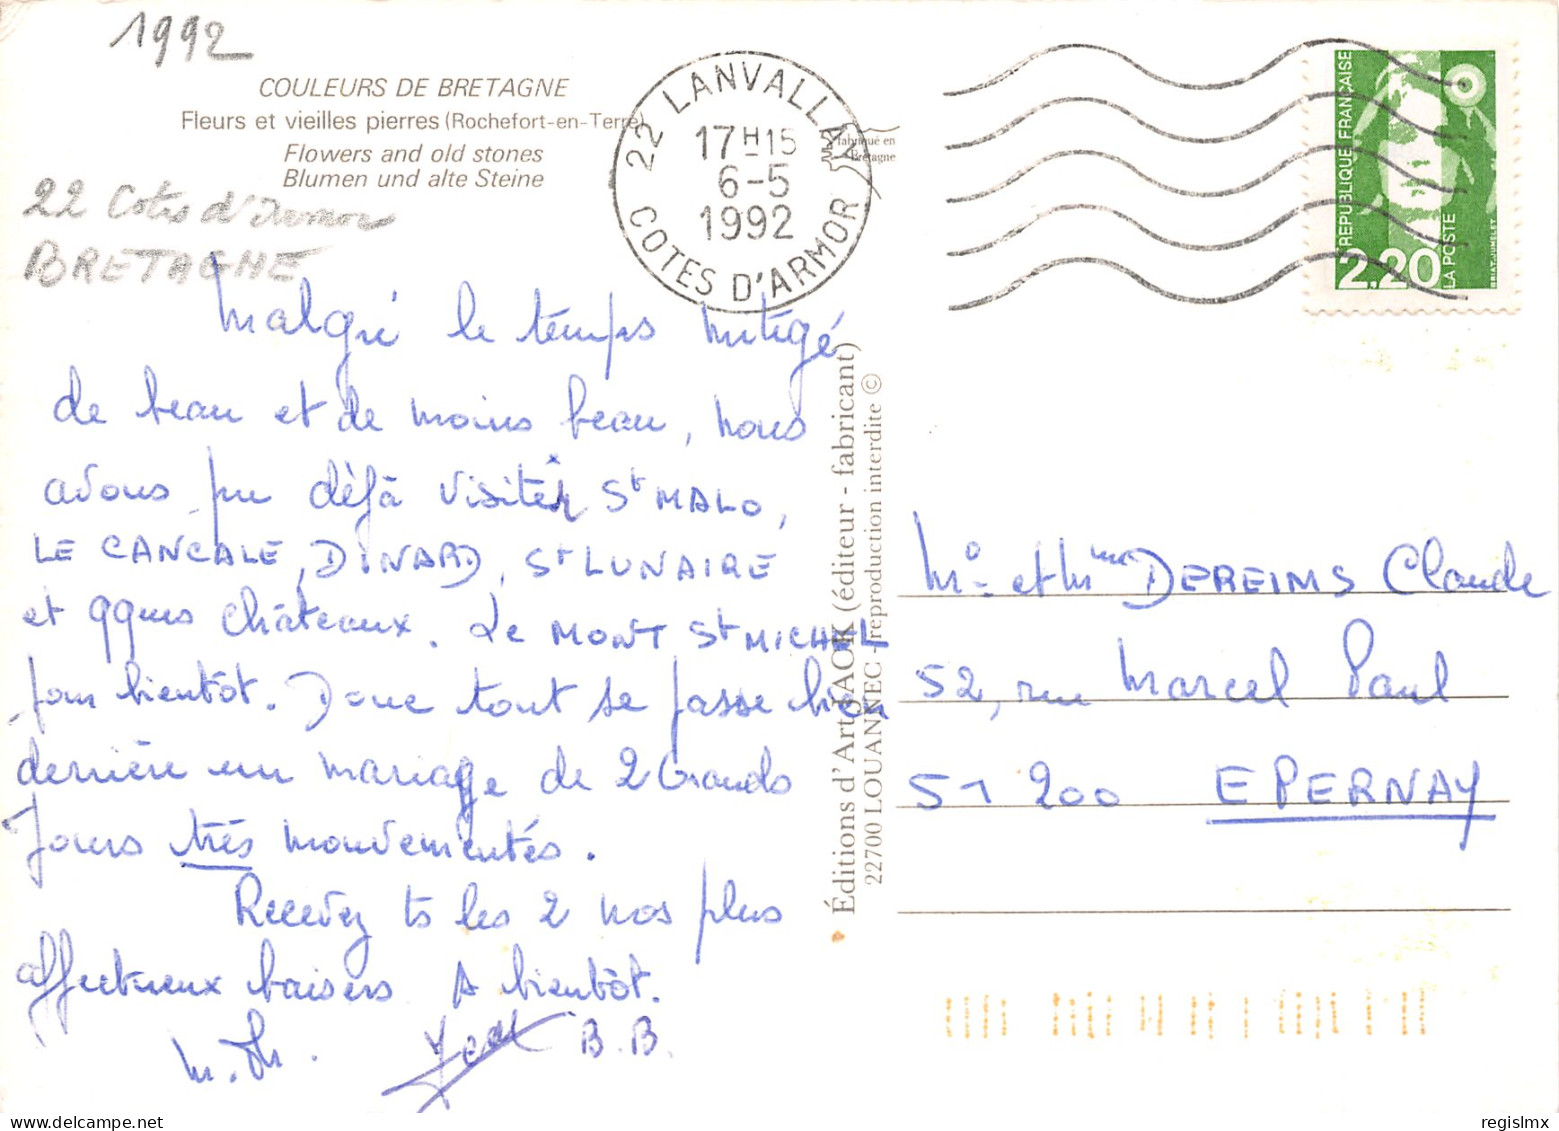 1992
COULEURS DE BRETAGNE
Fleurs et vieilles pierres (Rochefort-en-Terre)
Flowers and old stones
Blumen und alte Steine
22 Cotes d'Armor
BRETAGNE
22 LANVALLAY
17H15
6-5
1992
COTES D'ARMOR
fabriqué en
Bretagne
REPUBLIQUE FRANÇAISE
2,20
LA POSTE
BRIAT-JUMELET
Malgré le temps mitigé
de beau et de moins beau, nous
avons pu déjà visiter St MALO,
LE CANCALE, DINARD, St LUNAIRE
et qques Châteaux. Le MONT St MICHEL
pour bientôt. Donc tout se passe bien
derrière un mariage de 2 Grands
Jours très mouvementés.
Recevez ts les 2 nos plus
affectueux baisers A bientôt.
M. Th. Jean B.B.
Éditions d'Art JAOK (éditeur - fabricant)
22700 LOUANNEC - reproduction interdite ©
Mr et Mme DEREIMS Claude
52, rue Marcel Paul
51 200 EPERNAY
regislmx